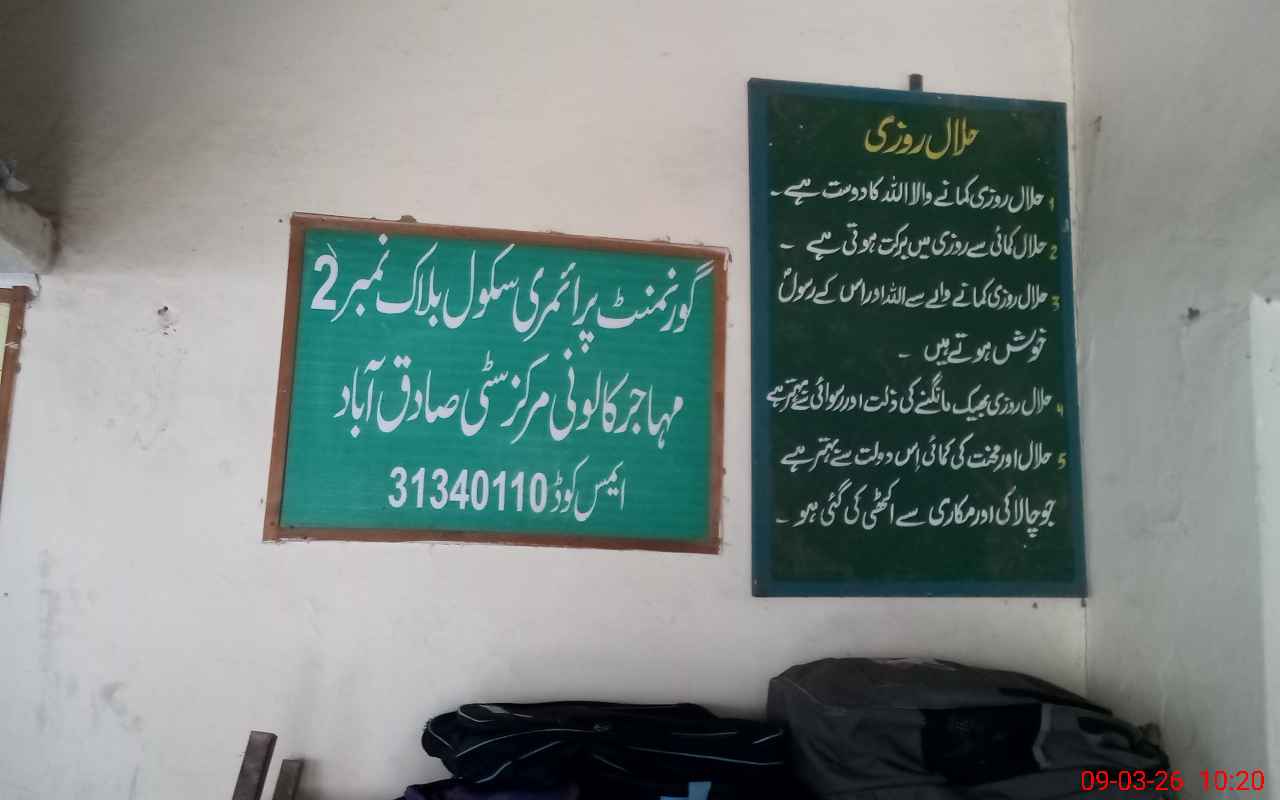 گورنمنٹ پرائمری سکول بلاک نمبر 2
مہاجر کالونی مرکز سٹی صادق آباد
ایمس کوڈ 31340110
حلال روزی
1 حلال روزی کمانے والا اللہ کا دوست ہے ۔
2 حلال کمائی سے روزی میں برکت ہوتی ہے ۔
3 حلال روزی کمانے والے سے اللہ اور اس کے رسولؐ
خوش ہوتے ہیں ۔
4 حلال روزی بھیک مانگنے کی ذلت اور رسوائی سے بہتر ہے
5 حلال اور محنت کی کمائی اِس دولت سے بہتر ہے
جو چالاکی اور مکاری سے اکٹھی کی گئی ہو ۔
09-03-26 10:20